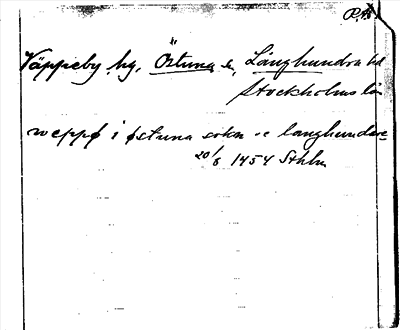 Väppeby, by, Östuna sn, Långhundra hd
Stockholms län
weppø i østuna sokn oc langhundare
20/8 1454 Sthlm